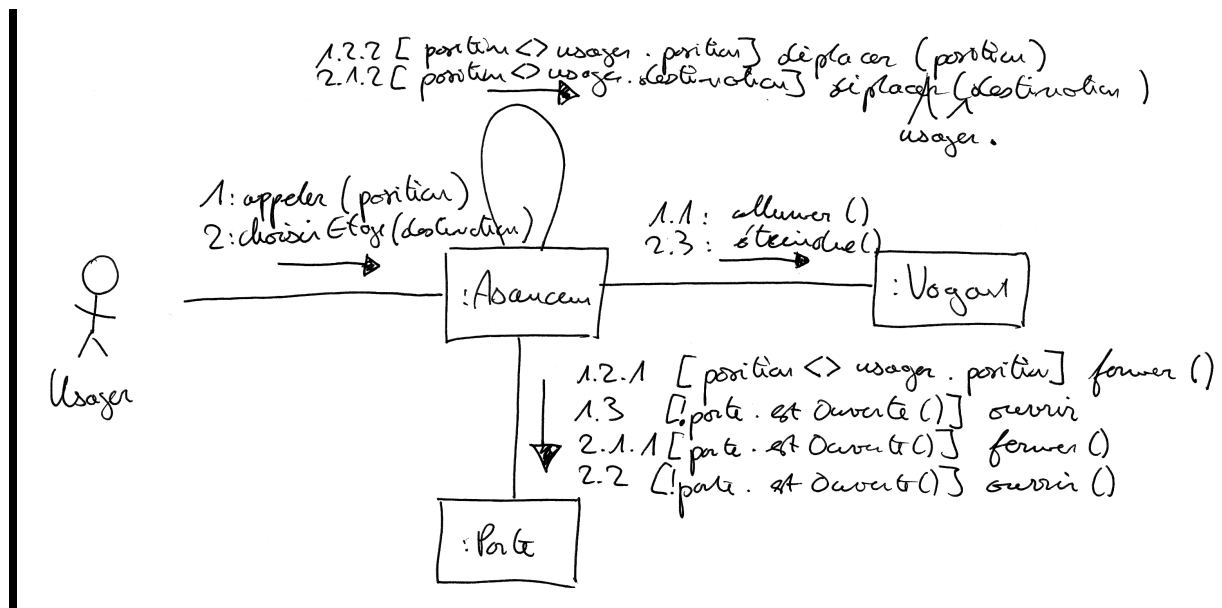 1.2.2 [ position <> usager . position] déplacer (position)
2.1.2 [ position <> usager . destination] déplacer (destination )
usager .
1: appeler (position)
2: choisir Etage (destination)
1.1 : allumer ()
2.3 : éteindre()
:Ascenceur
: Voyant
Usager
1.2.1 [ position <> usager . position] fermer ()
1.3 [!porte . est Ouverte ()] ouvrir
2.1.1 [porte . est Ouverte ()] fermer ()
2.2 [!porte . est Ouverte ()] ouvrir ()
: Porte